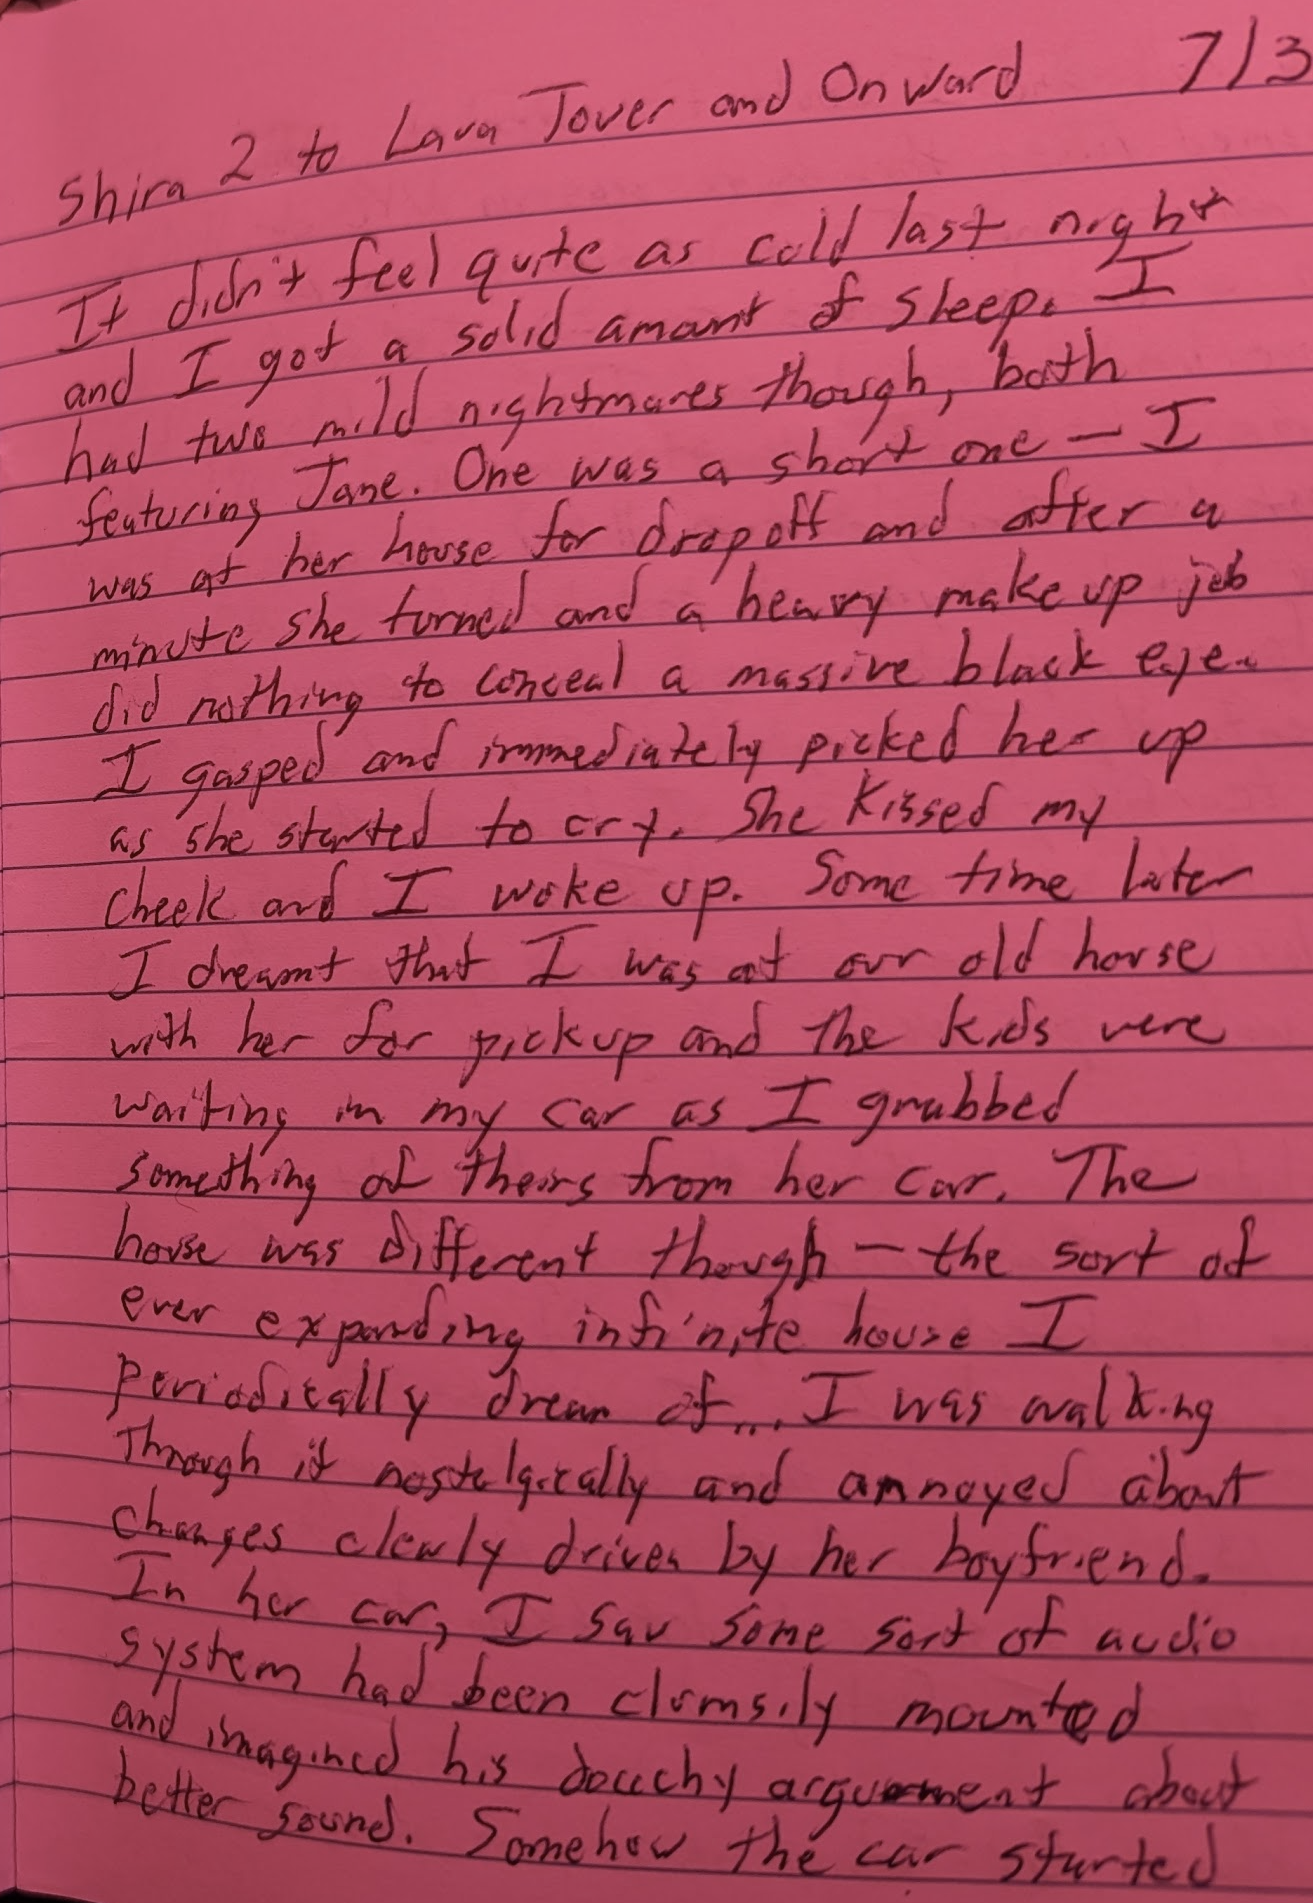 Shira 2 to Lava Tower and Onward 7/3
It didn't feel quite as cold last night
and I got a solid amount of sleep. I
had two mild nightmares though, both
featuring Jane. One was a short one — I
was at her house for dropoff and after a
minute she turned and a heavy makeup job
did nothing to conceal a massive black eye.
I gasped and immediately picked her up
as she started to cry. She kissed my
cheek and I woke up. Some time later
I dreamt that I was at our old house
with her for pickup and the kids were
waiting in my car as I grabbed
something of theirs from her car. The
house was different though — the sort of
ever expanding infinite house I
periodically dream of... I was walking
through it nostelgically and annoyed about
changes clearly driven by her boyfriend.
In her car, I saw some sort of audio
system had been clumsily mounted
and imagined his douchy arguement about
better sound. Somehow the car started